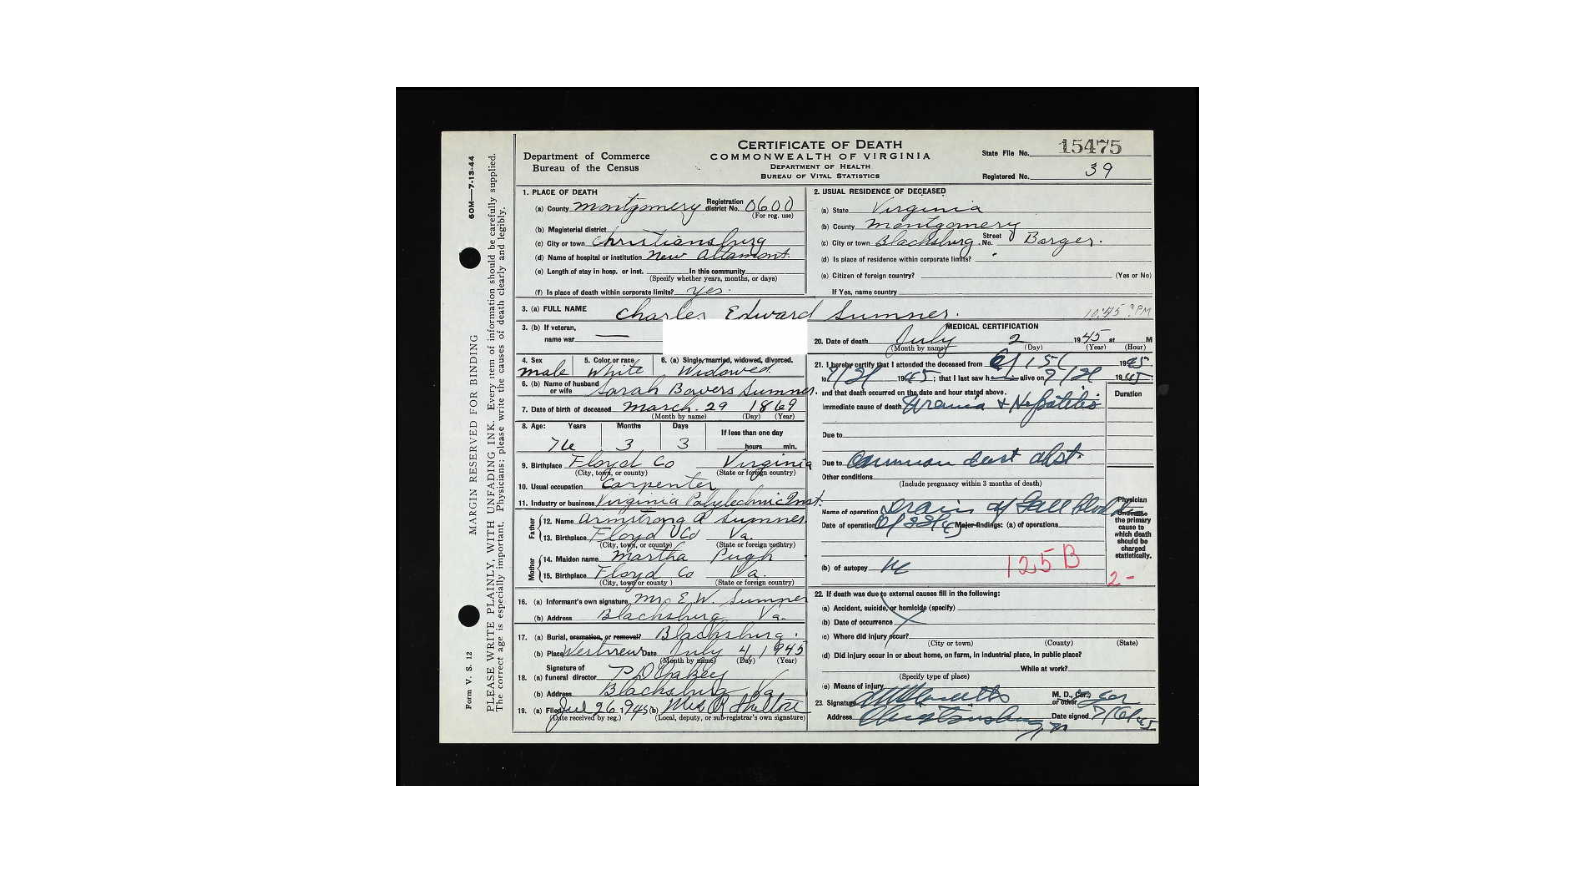 60M—7-13-44
MARGIN RESERVED FOR BINDING
PLEASE WRITE PLAINLY, WITH UNFADING INK. Every item of information should be carefully supplied.
The correct age is especially important. Physicians: please write the causes of death clearly and legibly.
Form V. S. 12
Department of Commerce
Bureau of the Census
CERTIFICATE OF DEATH
COMMONWEALTH OF VIRGINIA
DEPARTMENT OF HEALTH
BUREAU OF VITAL STATISTICS
State File No. 15475
Registered No. 39
1. PLACE OF DEATH
(a) County Montgomery Registration district No. 0600
(For reg. use)
(b) Magisterial district
(c) City or town Christiansburg
(d) Name of hospital or institution New Altamont
(e) Length of stay in hosp. or inst. In this community
(Specify whether years, months, or days)
(f) In place of death within corporate limits? yes.
2. USUAL RESIDENCE OF DECEASED
(a) State Virginia
(b) County Montgomery
(c) City or town Blacksburg Street No. Barger.
(d) Is place of residence within corporate limits?
(e) Citizen of foreign country? (Yes or No)
If Yes, name country
3. (a) FULL NAME Charles Edward Sumner.
10:45 PM
3. (b) If veteran,
name war
4. Sex male 5. Color or race White 6. (a) Single, married, widowed, divorced. Widowed
6. (b) Name of husband or wife Sarah Bowers Sumner.
7. Date of birth of deceased March. 29 1869
(Month by name) (Day) (Year)
8. Age: Years Months Days If less than one day
76 3 3 hours min.
9. Birthplace Floyd Co Virginia
(City, town, or county) (State or foreign country)
10. Usual occupation Carpenter
11. Industry or business Virginia Polytechnic Inst.
Father
12. Name Armstrong A Sumner.
13. Birthplace Floyd Co Va.
(City, town, or county) (State or foreign country)
Mother
14. Maiden name Martha Pugh
15. Birthplace Floyd Co Va.
(City, town or county) (State or foreign country)
16. (a) Informant's own signature Mr. E. W. Sumner
(b) Address Blacksburg Va.
17. (a) Burial, cremation, or removal? Blacksburg.
(b) Place Westview Date July 4, 1945
(Month by name) (Day) (Year)
Signature of
18. (a) funeral director
(b) Address Blacksburg Va.
19. (a) Filed Jul 26, 1945 (b) Mrs
(Date received by reg.) (Local, deputy, or sub-registrar's own signature)
MEDICAL CERTIFICATION
20. Date of death July 2 1945 at M
(Month by name) (Day) (Year) (Hour)
21. I hereby certify that I attended the deceased from 1945
to 1945; that I last saw h alive on 1945
and that death occurred on the date and hour stated above.
Duration
Immediate cause of death Uremia + Hepatitis
Due to
Due to Common duct obst.
Other conditions
(Include pregnancy within 3 months of death)
Name of operation Drain of Gall Bladder
Date of operation Major findings: (a) of operations
(b) of autopsy
125B
2-
Physician
Underline the primary cause to which death should be charged statistically.
22. If death was due to external causes fill in the following:
(a) Accident, suicide, or homicide (specify)
(b) Date of occurrence
(c) Where did injury occur?
(City or town) (County) (State)
(d) Did injury occur in or about home, on farm, in industrial place, in public place?
While at work?
(Specify type of place)
(e) Means of injury
23. Signature M. D., Cor., or other
Address Christiansburg Date signed 7/6/45